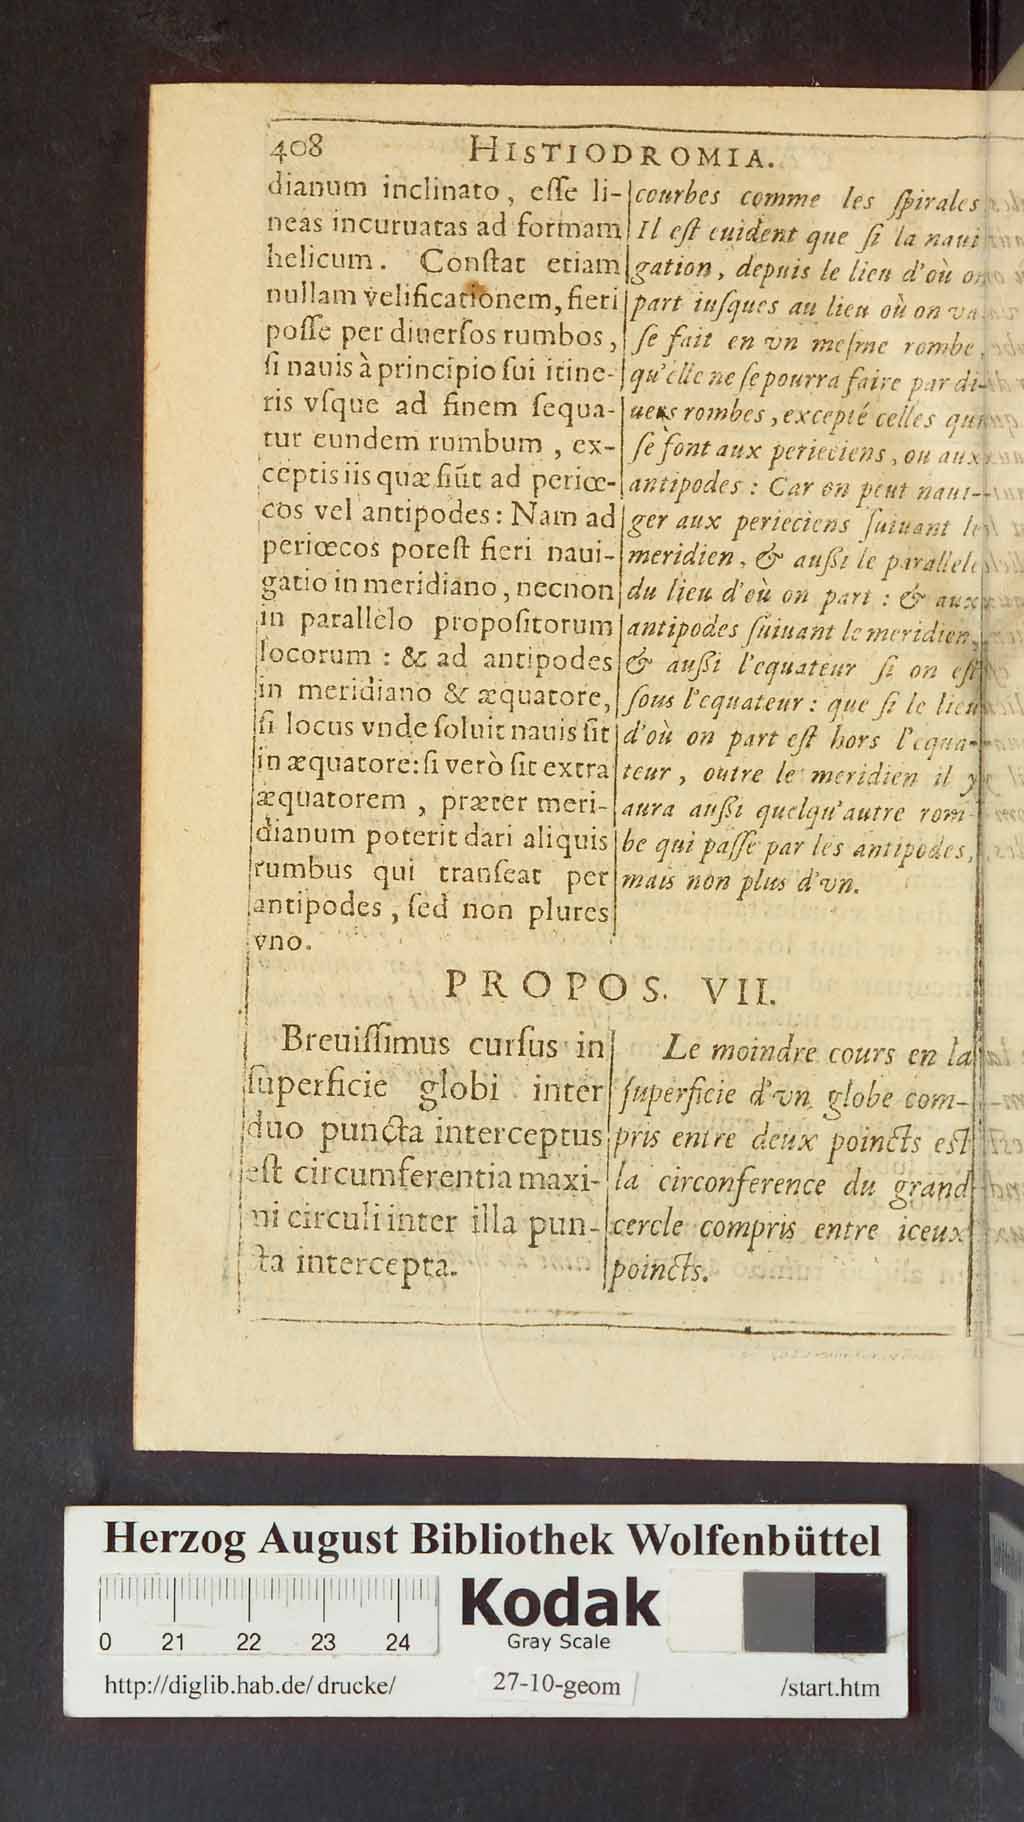 408 HISTIODROMIA.
dianum inclinato, eſſe li-
neas incuruatas ad formam
helicum. Conſtat etiam
nullam velificationem, fieri
poſſe per diuerſos rumbos,
ſi nauis à principio ſui itine-
ris vſque ad finem ſequa-
tur eundem rumbum, ex-
ceptis iis quæ ſiũt ad periœ-
cos vel antipodes: Nam ad
periœcos poteſt fieri naui-
gatio in meridiano, necnon
in parallelo propoſitorum
locorum : & ad antipodes
in meridiano & æquatore,
ſi locus vnde ſoluit nauis ſit
in æquatore: ſi verò ſit extra
æquatorem, præter meri-
dianum poterit dari aliquis
rumbus qui tranſeat per
antipodes, ſed non plures
vno.
courbes comme les ſpirales
Il eſt euident que ſi la naui
gation, depuis le lieu d'où on
part iuſques au lieu où on va
ſe fait en vn meſme rombe,
qu'elle ne ſe pourra faire par di-
uers rombes, excepté celles qui
ſe font aux perieciens, ou aux
antipodes : Car on peut naui-
ger aux perieciens ſuiuant le
meridien, & auſſi le parallele
du lieu d'où on part : & aux
antipodes ſuiuant le meridien,
& auſſi l'equateur ſi on eſt
ſous l'equateur : que ſi le lieu
d'où on part eſt hors l'equa-
teur, outre le meridien il y
aura auſſi quelqu'autre rom-
be qui paſſe par les antipodes,
mais non plus d'vn.
PROPOS. VII.
Breuiſſimus curſus in
ſuperficie globi inter
duo puncta interceptus
eſt circumferentia maxi-
mi circuli inter illa pun-
cta intercepta.
Le moindre cours en la
ſuperficie d'vn globe com-
pris entre deux poincts eſt
la circonference du grand
cercle compris entre iceux
poincts.
Herzog August Bibliothek Wolfenbüttel
0 21 22 23 24
Kodak
Gray Scale
http://diglib.hab.de/drucke/ 27-10-geom /start.htm